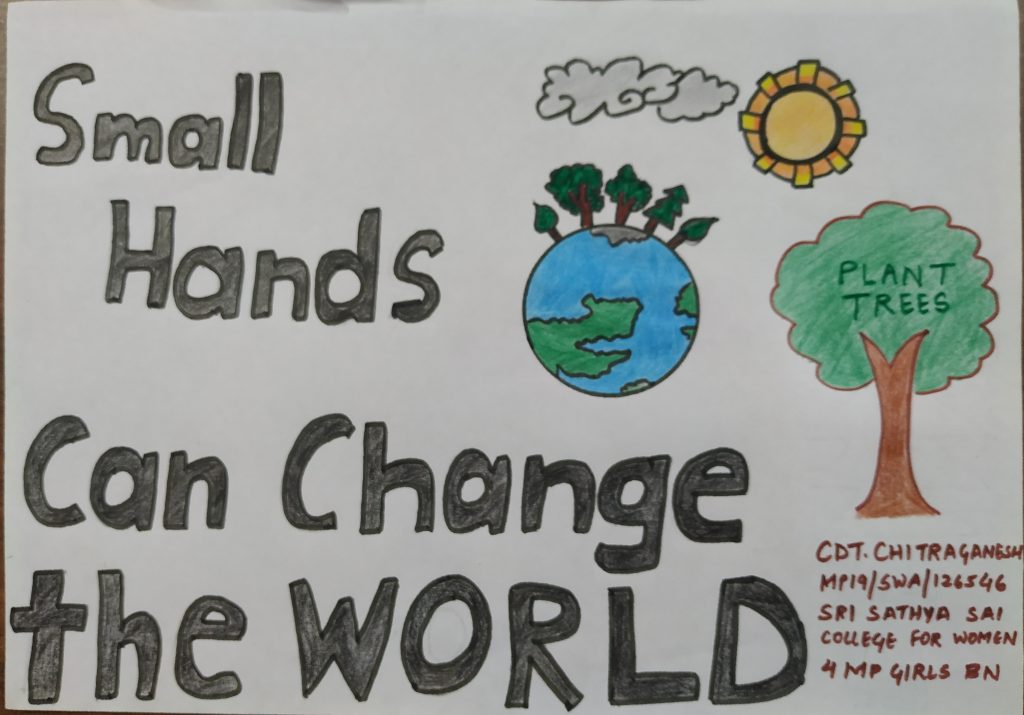 Small
Hands
Can Change
the WORLD
PLANT
TREES
CDT. CHITRAGANESH
MP19/SWA/126546
SRI SATHYA SAI
COLLEGE FOR WOMEN
4 MP GIRLS BN